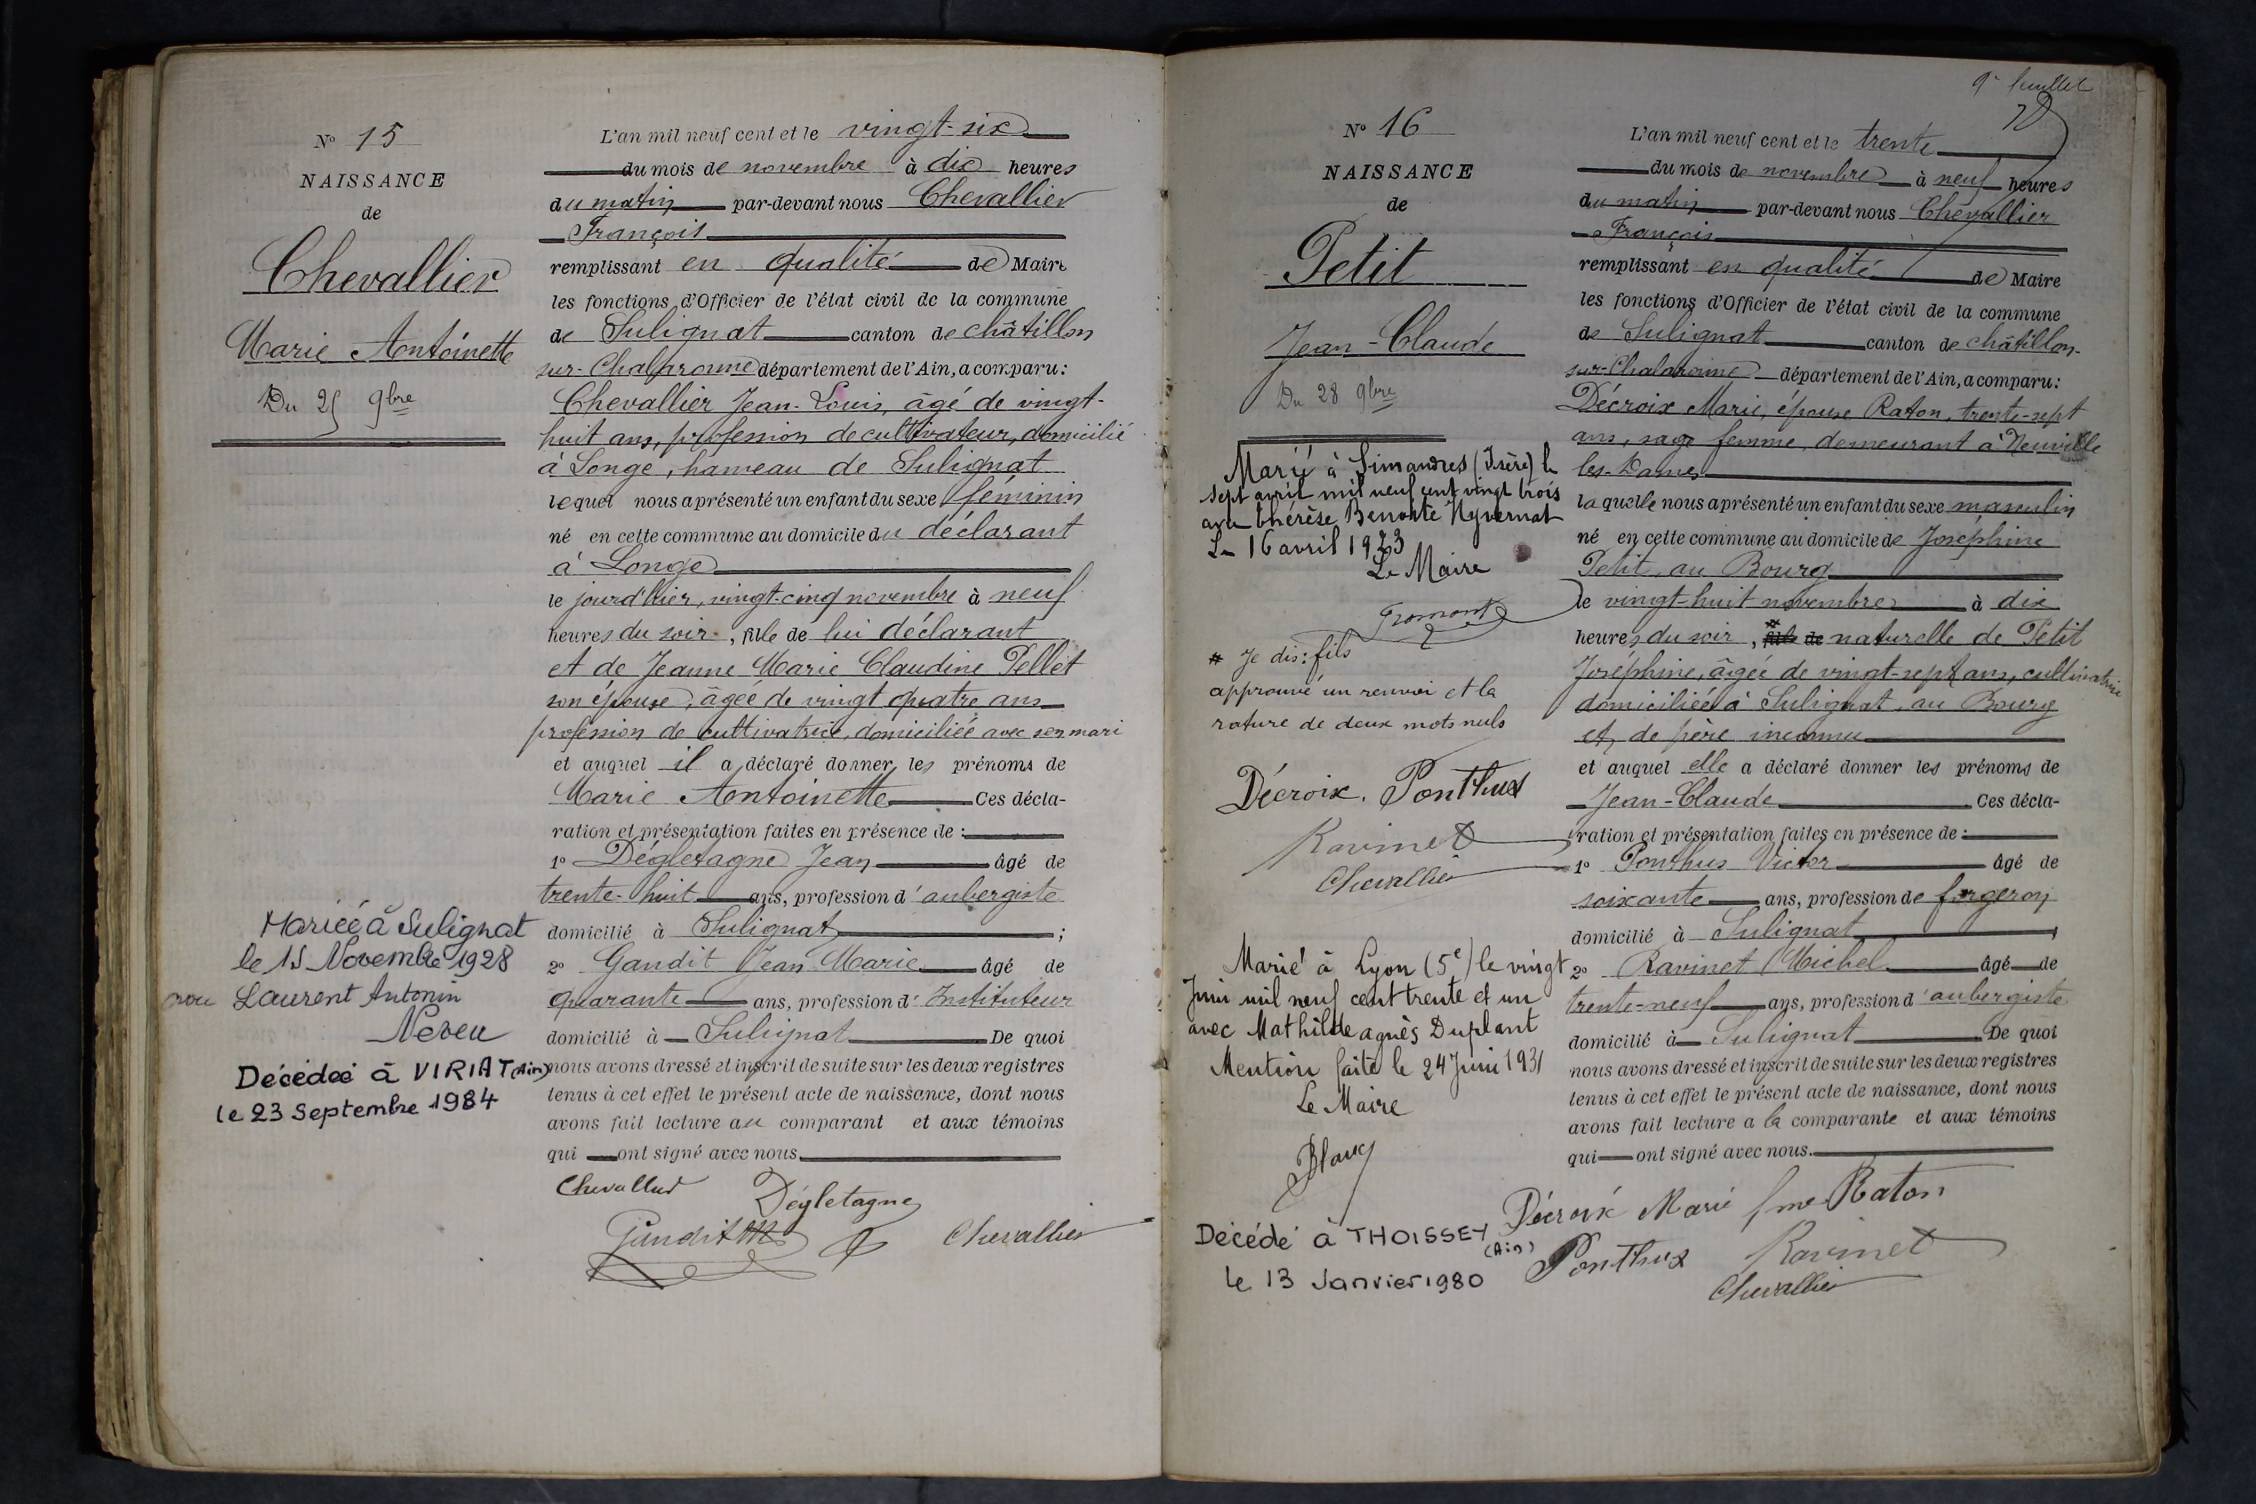 N° 15
NAISSANCE
de
Chevallier
Marie Antoinette
Du 25 9bre
Mariée à Sulignat
le 15 Novembre 1928
avec Laurent Antonin
Neveu
Décédée à VIRIAT (Ain)
le 23 Septembre 1984
L'an mil neuf cent et le vingt-six
du mois de novembre à dix heures
du matin par-devant nous Chevallier
François
remplissant en qualité de Maire
les fonctions d'Officier de l'état civil de la commune
de Sulignat canton de châtillon
sur-Chalaronne département de l'Ain, a comparu:
Chevallier Jean-Louis, âgé de vingt-
huit ans, profession de cultivateur, domicilié
à Longe, hameau de Sulignat
lequel nous a présenté un enfant du sexe féminin
né en cette commune au domicile du déclarant
à Longe
le jourd'hier, vingt-cinq novembre à neuf
heures du soir, fille de lui déclarant
et de Jeanne Marie Claudine Pellet
son épouse, âgée de vingt quatre ans
profession de cultivatrice, domiciliée avec son mari
et auquel il a déclaré donner les prénoms de
Marie Antoinette Ces décla-
ration et présentation faites en présence de :
1° Dégletagne Jean âgé de
trente-huit ans, profession d'aubergiste
domicilié à Sulignat ;
2° Gandit Jean Marie âgé de
quarante ans, profession d'Instituteur
domicilié à Sulignat De quoi
nous avons dressé et inscrit de suite sur les deux registres
tenus à cet effet le présent acte de naissance, dont nous
avons fait lecture au comparant et aux témoins
qui ont signé avec nous
Chevallier Dégletagne
Gandit Chevallier
9e feuillet
N° 16
NAISSANCE
de
Petit
Jean-Claude
Du 28 9bre
Marié à Simandres (Isère) le
sept avril mil neuf cent vingt trois
avec Thérèse Benoîte Nyvernat
Le 16 avril 1923
Le Maire
Fromont
* Je dis: fils
approuvé un renvoi et la
rature de deux mots nuls
Décroix. Ponthus
Ravinet
Chevallier
Marié à Lyon (5e) le vingt
Juin mil neuf cent trente et un
avec Mathilde agnès Duplant
Mention faite le 24 Juin 1931
Le Maire
Blanc
Décédé à THOISSEY
(Ain)
le 13 Janvier 1980
L'an mil neuf cent et le trente
du mois de novembre à neuf heures
du matin par-devant nous Chevallier
François
remplissant en qualité de Maire
les fonctions d'Officier de l'état civil de la commune
de Sulignat canton de châtillon-
sur-Chalaronne département de l'Ain, a comparu:
Décroix Marie, épouse Raton, trente-sept
ans, sage femme, demeurant à Neuville
les-Dames
laquelle nous a présenté un enfant du sexe masculin
né en cette commune au domicile de Joséphine
Petit, au Bourg
le vingt-huit novembre à dix
heures du soir, * fils de naturelle de Petit
Joséphine, âgée de vingt-sept ans, cultivatrice
domiciliée à Sulignat, au Bourg
et, de père inconnu
et auquel elle a déclaré donner les prénoms de
Jean-Claude Ces décla-
ration et présentation faites en présence de :
1° Ponthus Victor âgé de
soixante ans, profession de forgeron
domicilié à Sulignat
2° Ravinet Michel âgé de
trente-neuf ans, profession d'aubergiste
domicilié à Sulignat De quoi
nous avons dressé et inscrit de suite sur les deux registres
tenus à cet effet le présent acte de naissance, dont nous
avons fait lecture a la comparante et aux témoins
qui ont signé avec nous.
Décroix Marie fme Raton
Ponthus Ravinet
Chevallier